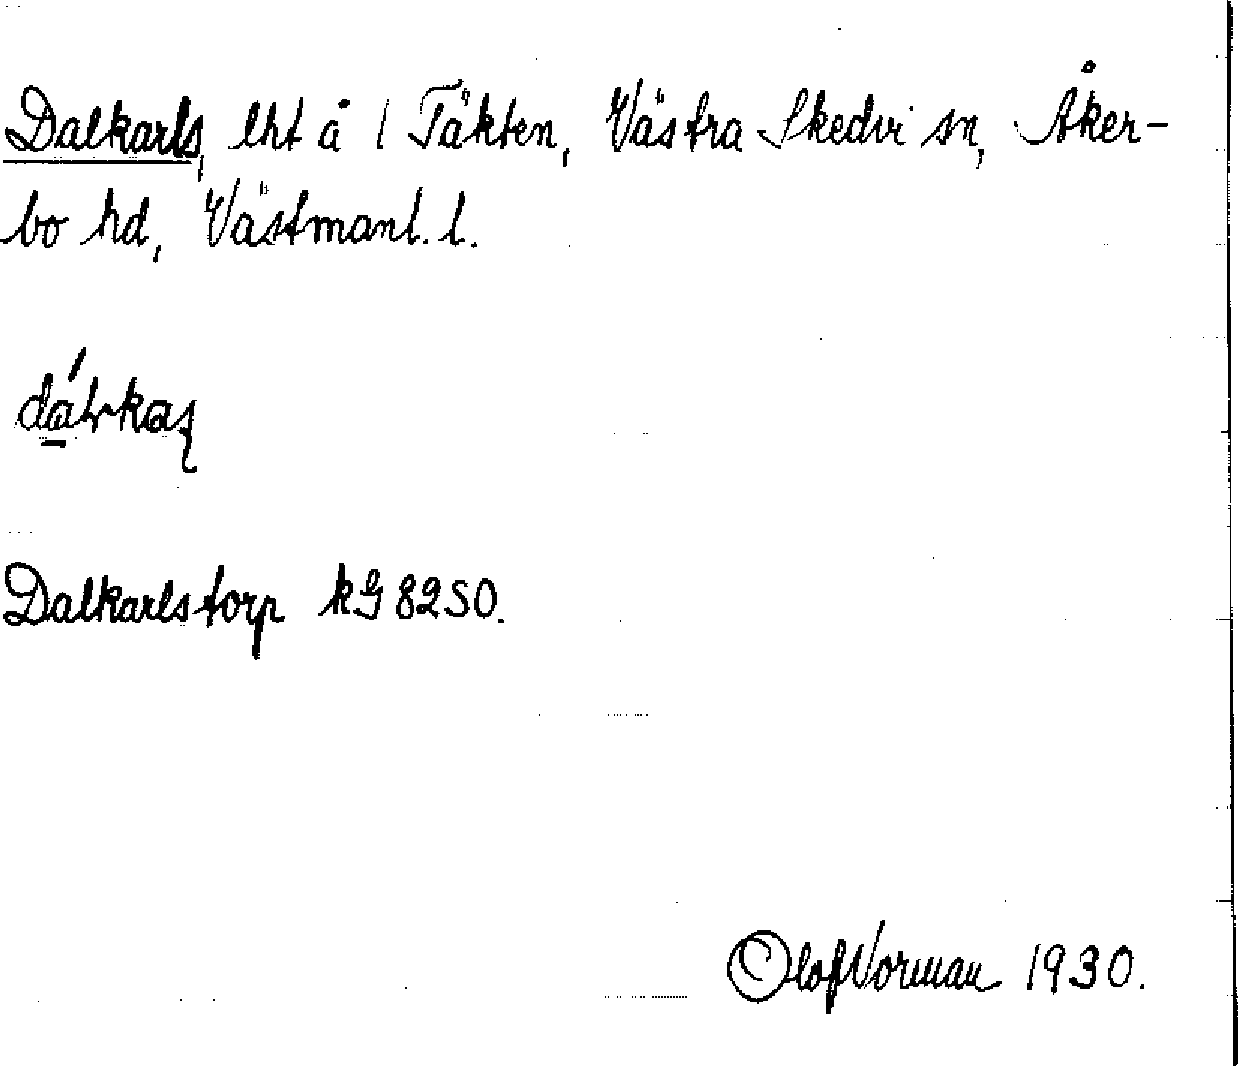 Dalkarls, lht å 1 Täkten, Västra Skedvi sn, Åker-
bo hd, Västmanl. l.
Dalkarlstorp kG 82SO.
Olof Norman 1930.